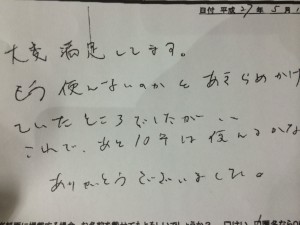 日付 平成 27年 5月
大変満足してます。
もう使えないのかとあきらめかけ
ていたところでしたが..
これで、あと10年は使えるかな
ありがとうございました。